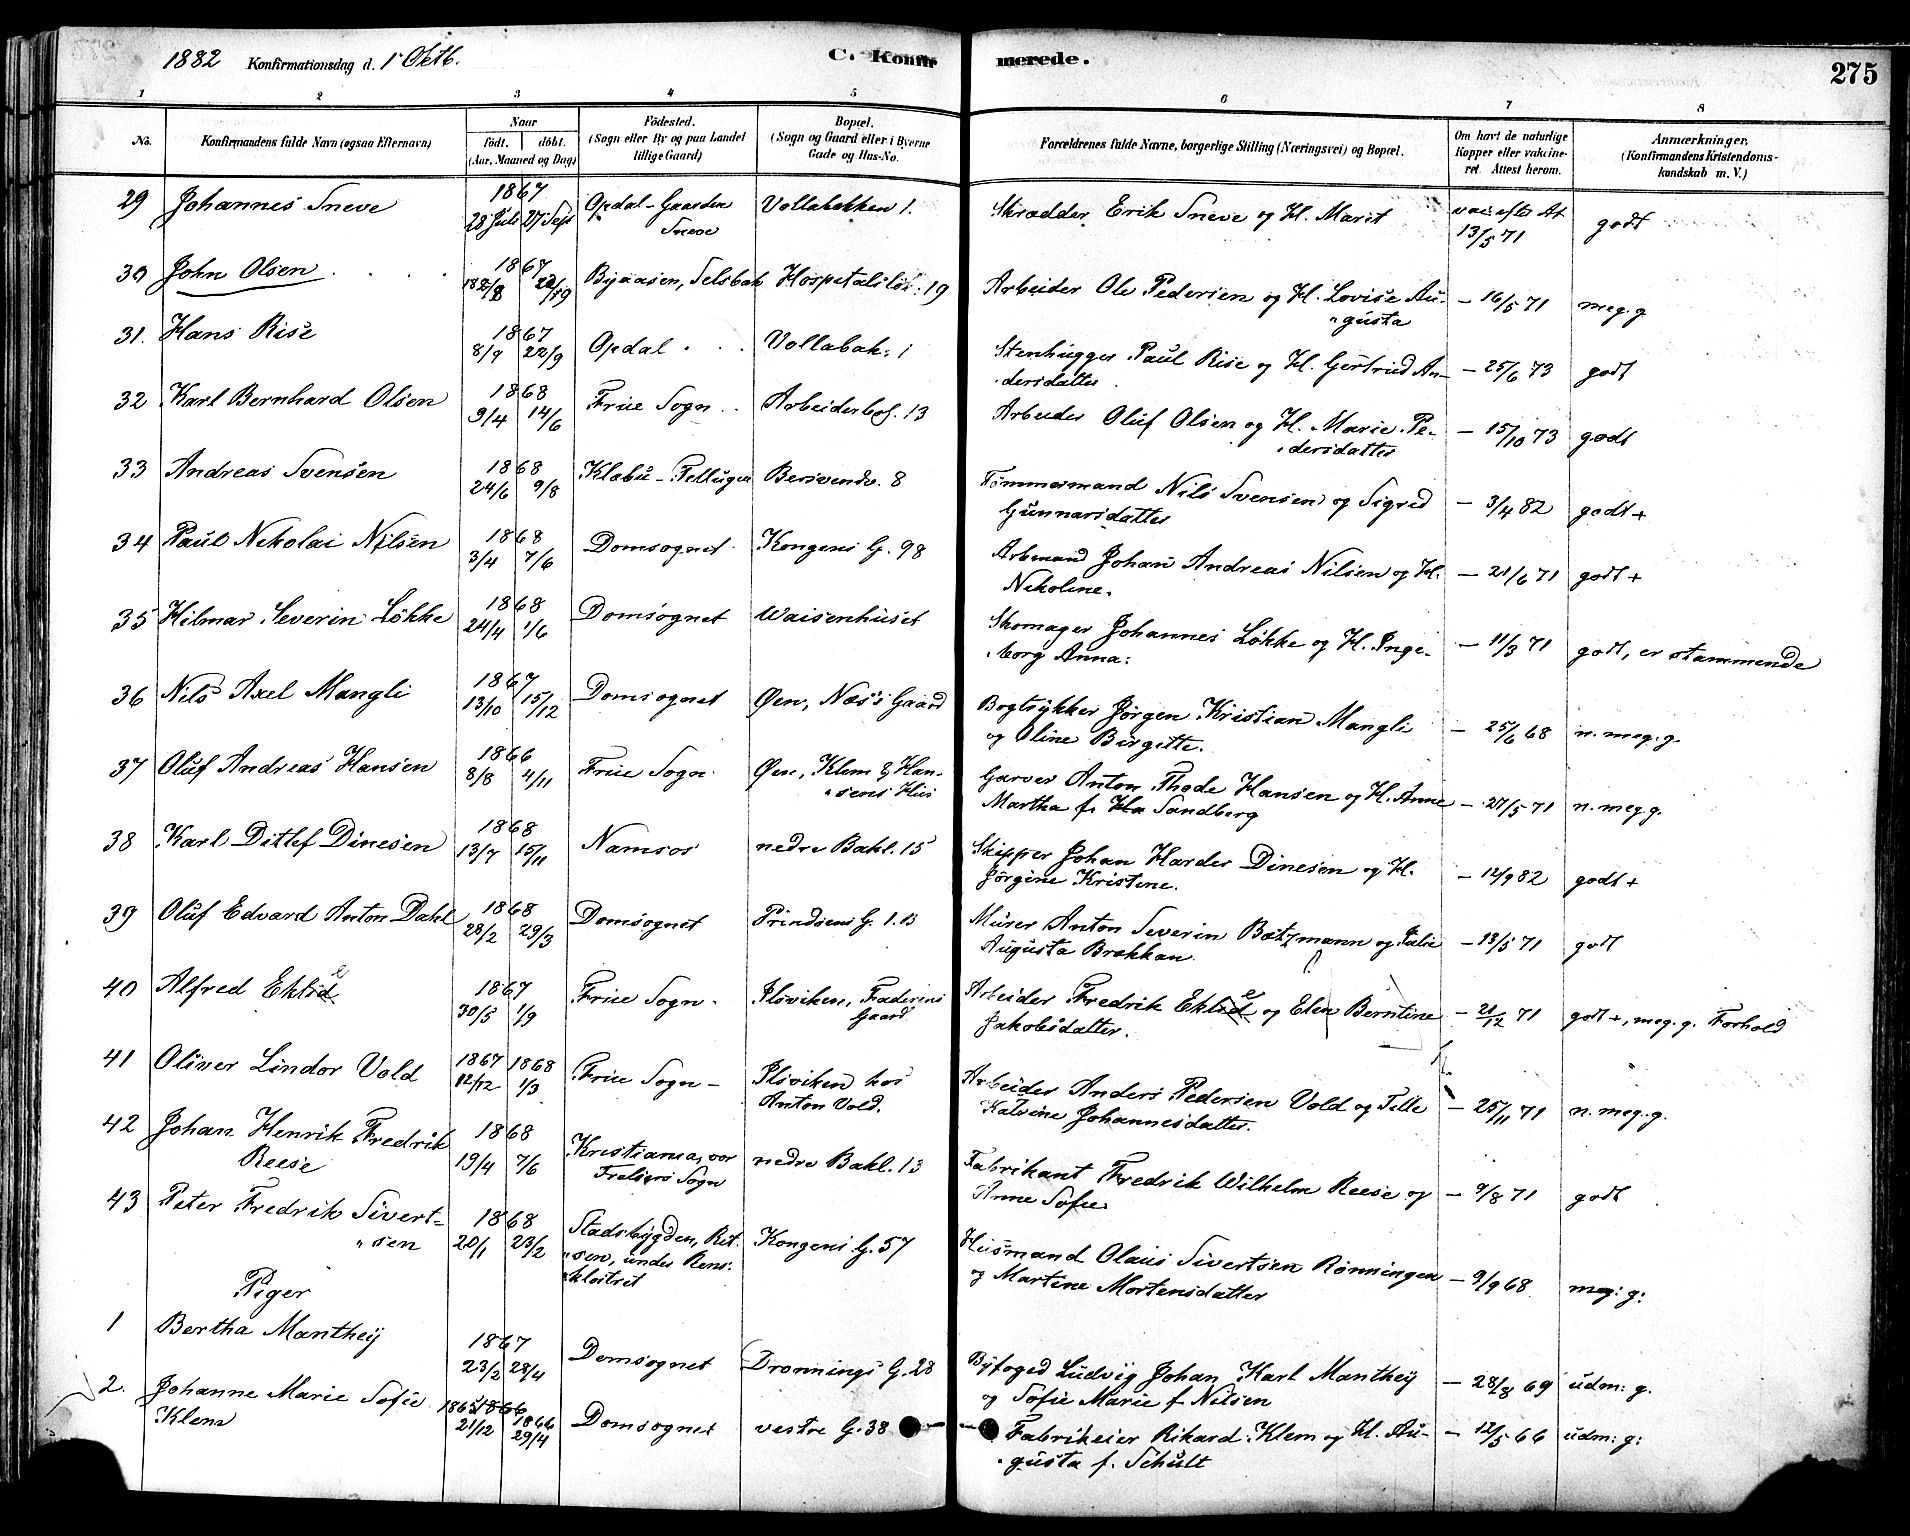 1882 Konfirmationsdag d. 1 Oktb. C. Konfirmerede. 275
1 2 3 4 5 6 7 8
No. Konfirmandens fulde Navn (ogsaa Efternavn) Naar født. døbt. (Aar, Maaned og Dag) Fødested. (Sogn eller By og paa Landet tillige Gaard) Bopæl. (Sogn og Gaard eller i Byerne Gade og Hus-No. Forældrenes fulde Navne, borgerlige Stilling (Næringsvei) og Bopæl. Om havt de naturlige Kopper eller vakcineret. Attest herom. Anmærkninger, (Konfirmandens Kristendomskundskab m. V.)
29 Johannes Sneve 1867 28 Juli 27 Sept Opdal - Gaarden Sneve Vollabakken 1. Skrædder Erik Sneve og H. Marit vac. efter At. 13/5 71 godt
30 John Olsen 1867 22/9 Byaasen, Selsbak 19 Arbeider Ole Pedersen og H. Lovise Augusta - 16/5 71 meg. g
31. Hans Rise 1867 8/9 22/9 Opdal Vollabak: 1 Stenhugger Paul Rise og H. Gertrud Andersdatter - 25/6 73 godt
32 Karl Bernhard Olsen 1868 9/4 14/6 Frue Sogn Arbeiderbol. 13 Arbeider Oluf Olsen og H. Marie Pedersdatter - 15/10 73 godt
33 Andreas Svensen 1868 24/6 9/8 Klæbu - Fellugen 8 Tømmermand Nils Svensen og Sigrid Gunnarsdatter - 3/4 82 godt +
34 Paul Nekolai Nilsen 1868 3/4 7/6 Domsognet Kongens G. 98 Arbmand Johan Andreas Nilsen og H. Nekoline. - 21/6 71 godt +
35 Hilmar Severin Løkke 1868 24/4 1/6 Domsognet Waisenhuset Skomager Johannes Løkke og H. Ingeborg Anna: - 11/3 71 godt, er stammende
36 Nils Axel Mangli 1867 13/10 15/12 Domsognet Øen, Næss Gaard Bogtrykker Jørgen Kristian Mangli og Oline Birgitte. - 25/6 68 n. meg. g.
37 Oluf Andreas Hansen 1866 8/8 4/11 Frue Sogn Øen, Klem & Hansens Hus Garver Anton Thode Hansen og H. Anne Martha f. Sandberg - 27/5 71 n. meg. g.
38 Karl Ditlef Dinesen 1868 13/7 15/11 Namsos nedre Bakl. 15 Skipper Johan Harder Dinesen og H. Jørgine Kristine. - 12/9 82 godt +
39 Oluf Edvard Anton Dahl 1868 28/2 29/3 Domsognet Prindsens G. 1. B Murer Anton Severin Bætzmann og Julie Augusta Brækkan. - 13/5 71 godt
40 Alfred Eklid 1867 30/5 1/9 Frue Sogn Ilsviken, Gaard Arbeider Fredrik Eklid og Elen Berntine Jakobsdatter. - 21/12 71 godt +, meg. g. Forhold
41 Oliver Lindor Vold 1867 12/12 1868 1/3 Frue Sogn - Ilsviken hos Anton Vold. Arbeider Anders Pedersen Vold og Johannesdatter. - 25/11 71 n. meg. g.
42 Johan Henrik Fredrik Reese 1868 19/4 7/6 Kristiania, vor Frelsers Sogn nedre Bakl. 13 Fabrikant Fredrik Wilhelm Reese og Anne Sofie - 9/8 71 godt
43 Peter Fredrik Sivertsen 1868 20/1 23/2 Stadsbygden, Ritsen, under Rens: klostret Kongens G. 57 Husmand Olaus Sivertsen Rønningen og Martine Mortensdatter - 9/9 68 meg: g:
Piger
1 Bertha Manthey 1867 23/2 28/4 Domsognet Dronnings G. 28 Byfoged Ludvig Johan Karl Manthey og Sofie Marie f. Nilsen - 28/8 69 udm: g.
2. Johanne Marie Sofie Klem 1865 21/12 1866 29/4 Domsognet vestre G. 38 Fabrikeier Rikard Klem og H. Augusta f. Schult - 12/5 66 udm: g: